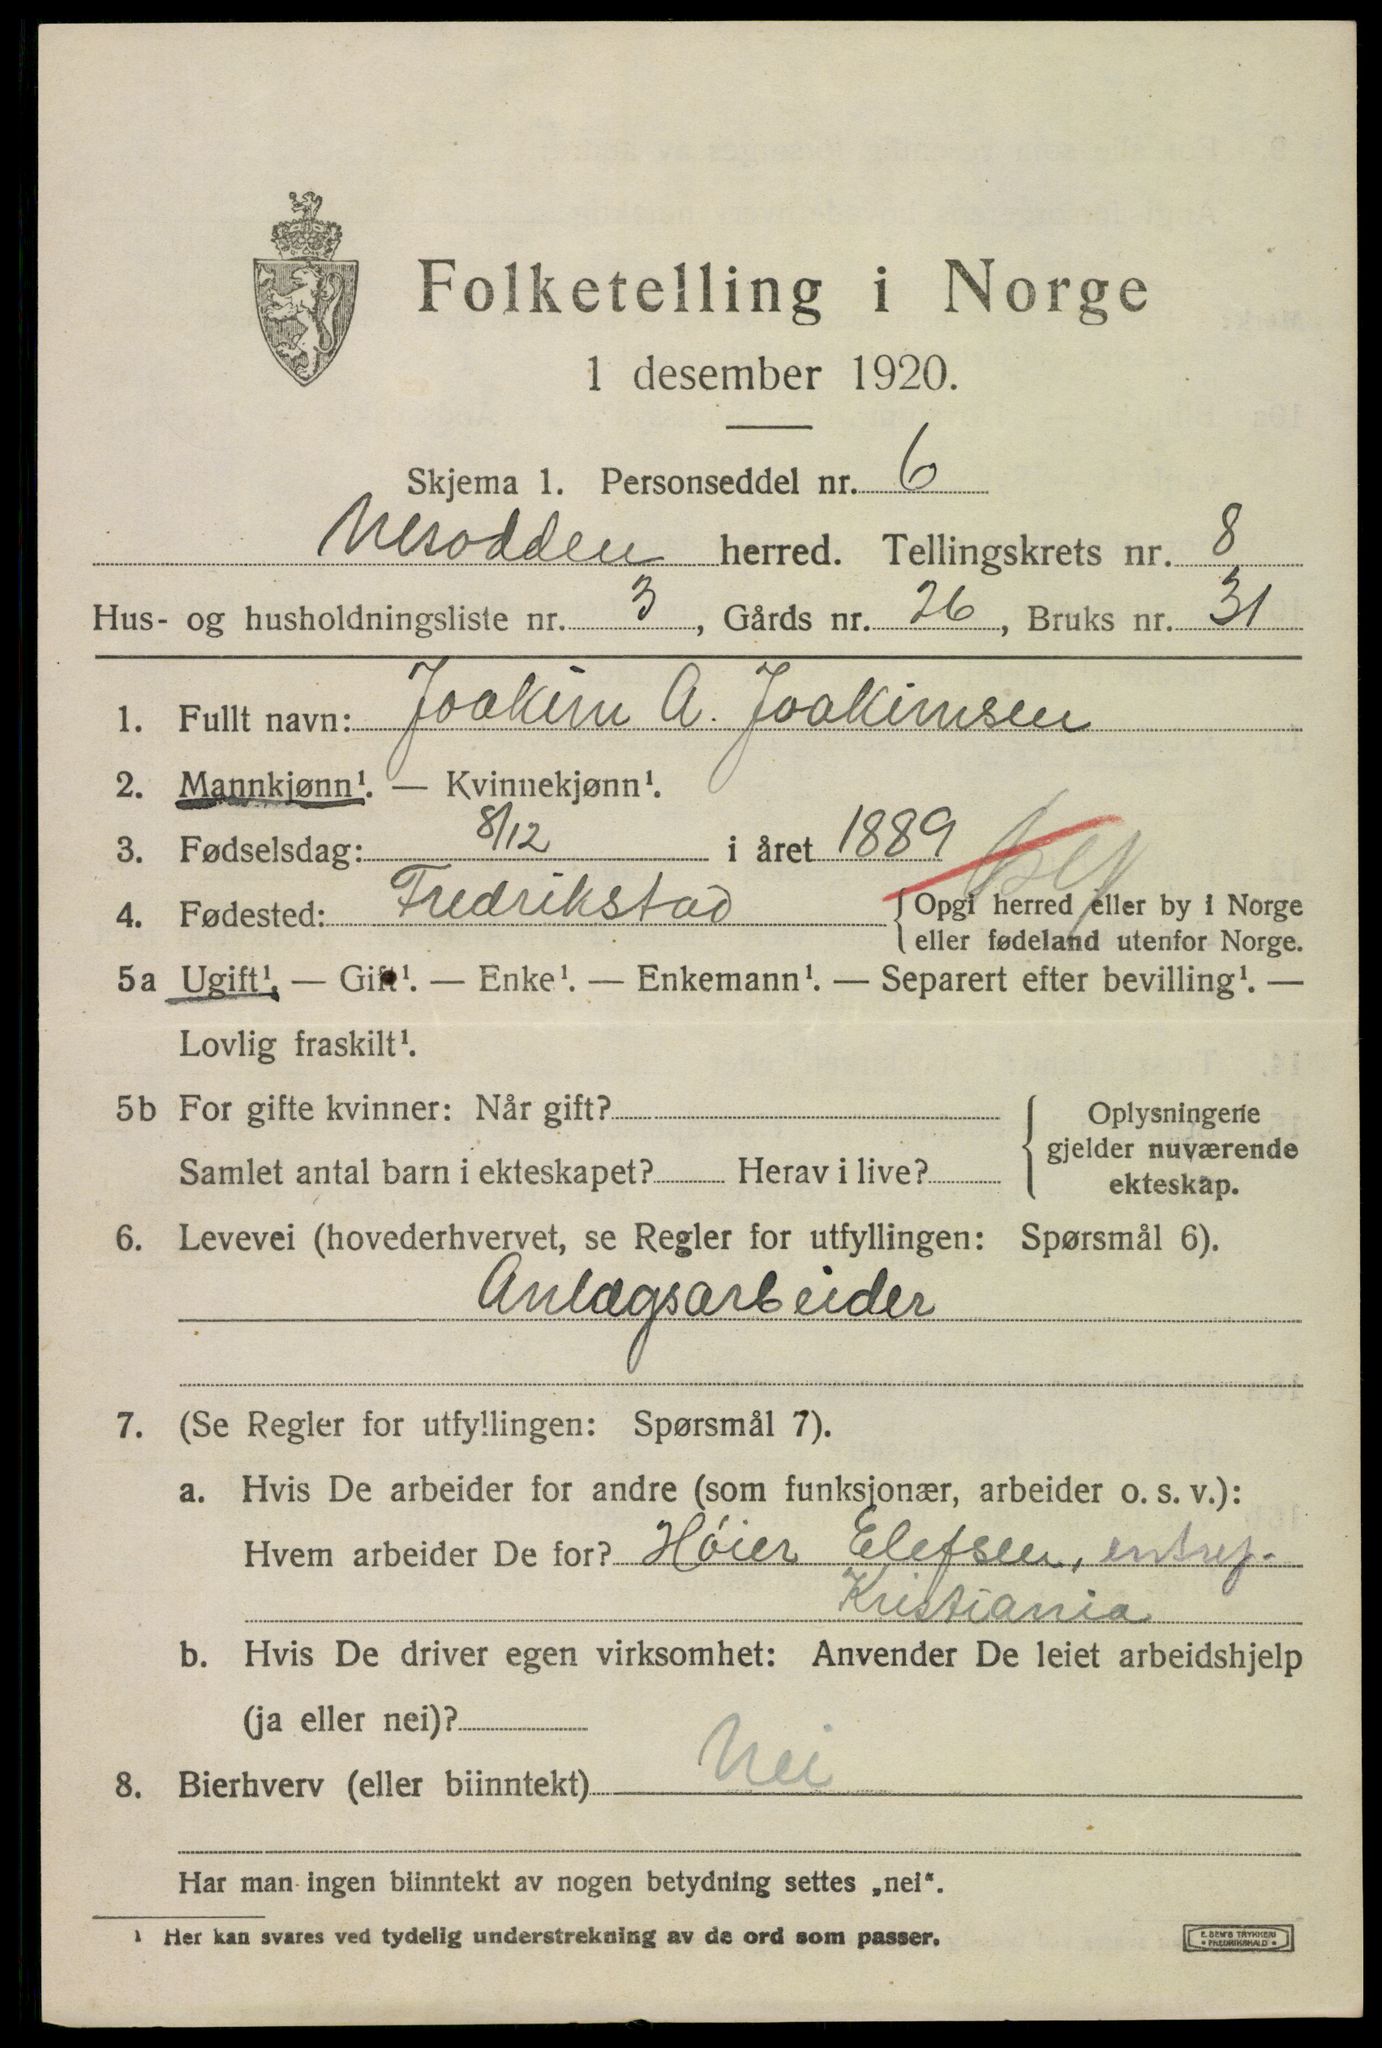 Folketelling i Norge
1 desember 1920.
Skjema 1. Personseddel nr. 6
Nesodden herred. Tellingskrets nr. 8
Hus- og husholdningsliste nr. 3, Gårds nr. 26, Bruks nr. 31
1. Fullt navn: Joakim A. Joakimsen
2. Mannkjønn¹. — Kvinnekjønn¹.
3. Fødselsdag: 8/12 i året 1889
by
4. Fødested: Fredrikstad { Opgi herred eller by i Norge
eller fødeland utenfor Norge.
5a Ugift¹. — Gift¹. — Enke¹. — Enkemann¹. — Separert efter bevilling¹. —
Lovlig fraskilt¹.
5b For gifte kvinner: Når gift?
Samlet antal barn i ekteskapet? Herav i live?
Oplysningene
gjelder nuværende
ekteskap.
6. Levevei (hovederhvervet, se Regler for utfyllingen: Spørsmål 6).
Anlægsarbeider
7. (Se Regler for utfyllingen: Spørsmål 7).
a. Hvis De arbeider for andre (som funksjonær, arbeider o. s. v.):
Hvem arbeider De for? Høier Elefsen, entrep.
Kristiania
b. Hvis De driver egen virksomhet: Anvender De leiet arbeidshjelp
(ja eller nei)?
8. Bierhverv (eller biinntekt) Nei
Har man ingen biinntekt av nogen betydning settes „nei“.
¹ Her kan svares ved tydelig understrekning av de ord som passer.
E. SEM'S TRYKKERI
• FREDRIKSHALD •